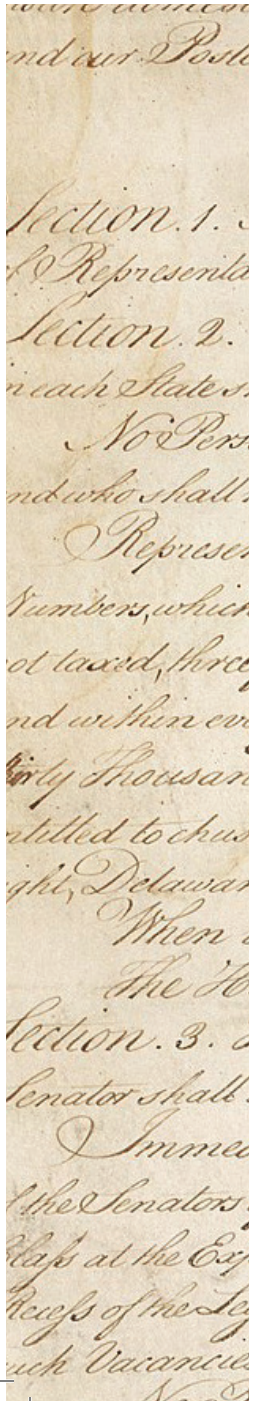 nd our Poste
Section. 1.
of Representa
Section. 2.
n each State s
No Pers
nd who shall
Represen
Numbers, which
ot taxed, three
nd within eve
hirty Thousan
ntitled to chus
ght, Delawar
When
The H
Section. 3.
Senator shall
Immed
f the Senators
Class at the Exp
Recess of the Leg
uch Vacancies